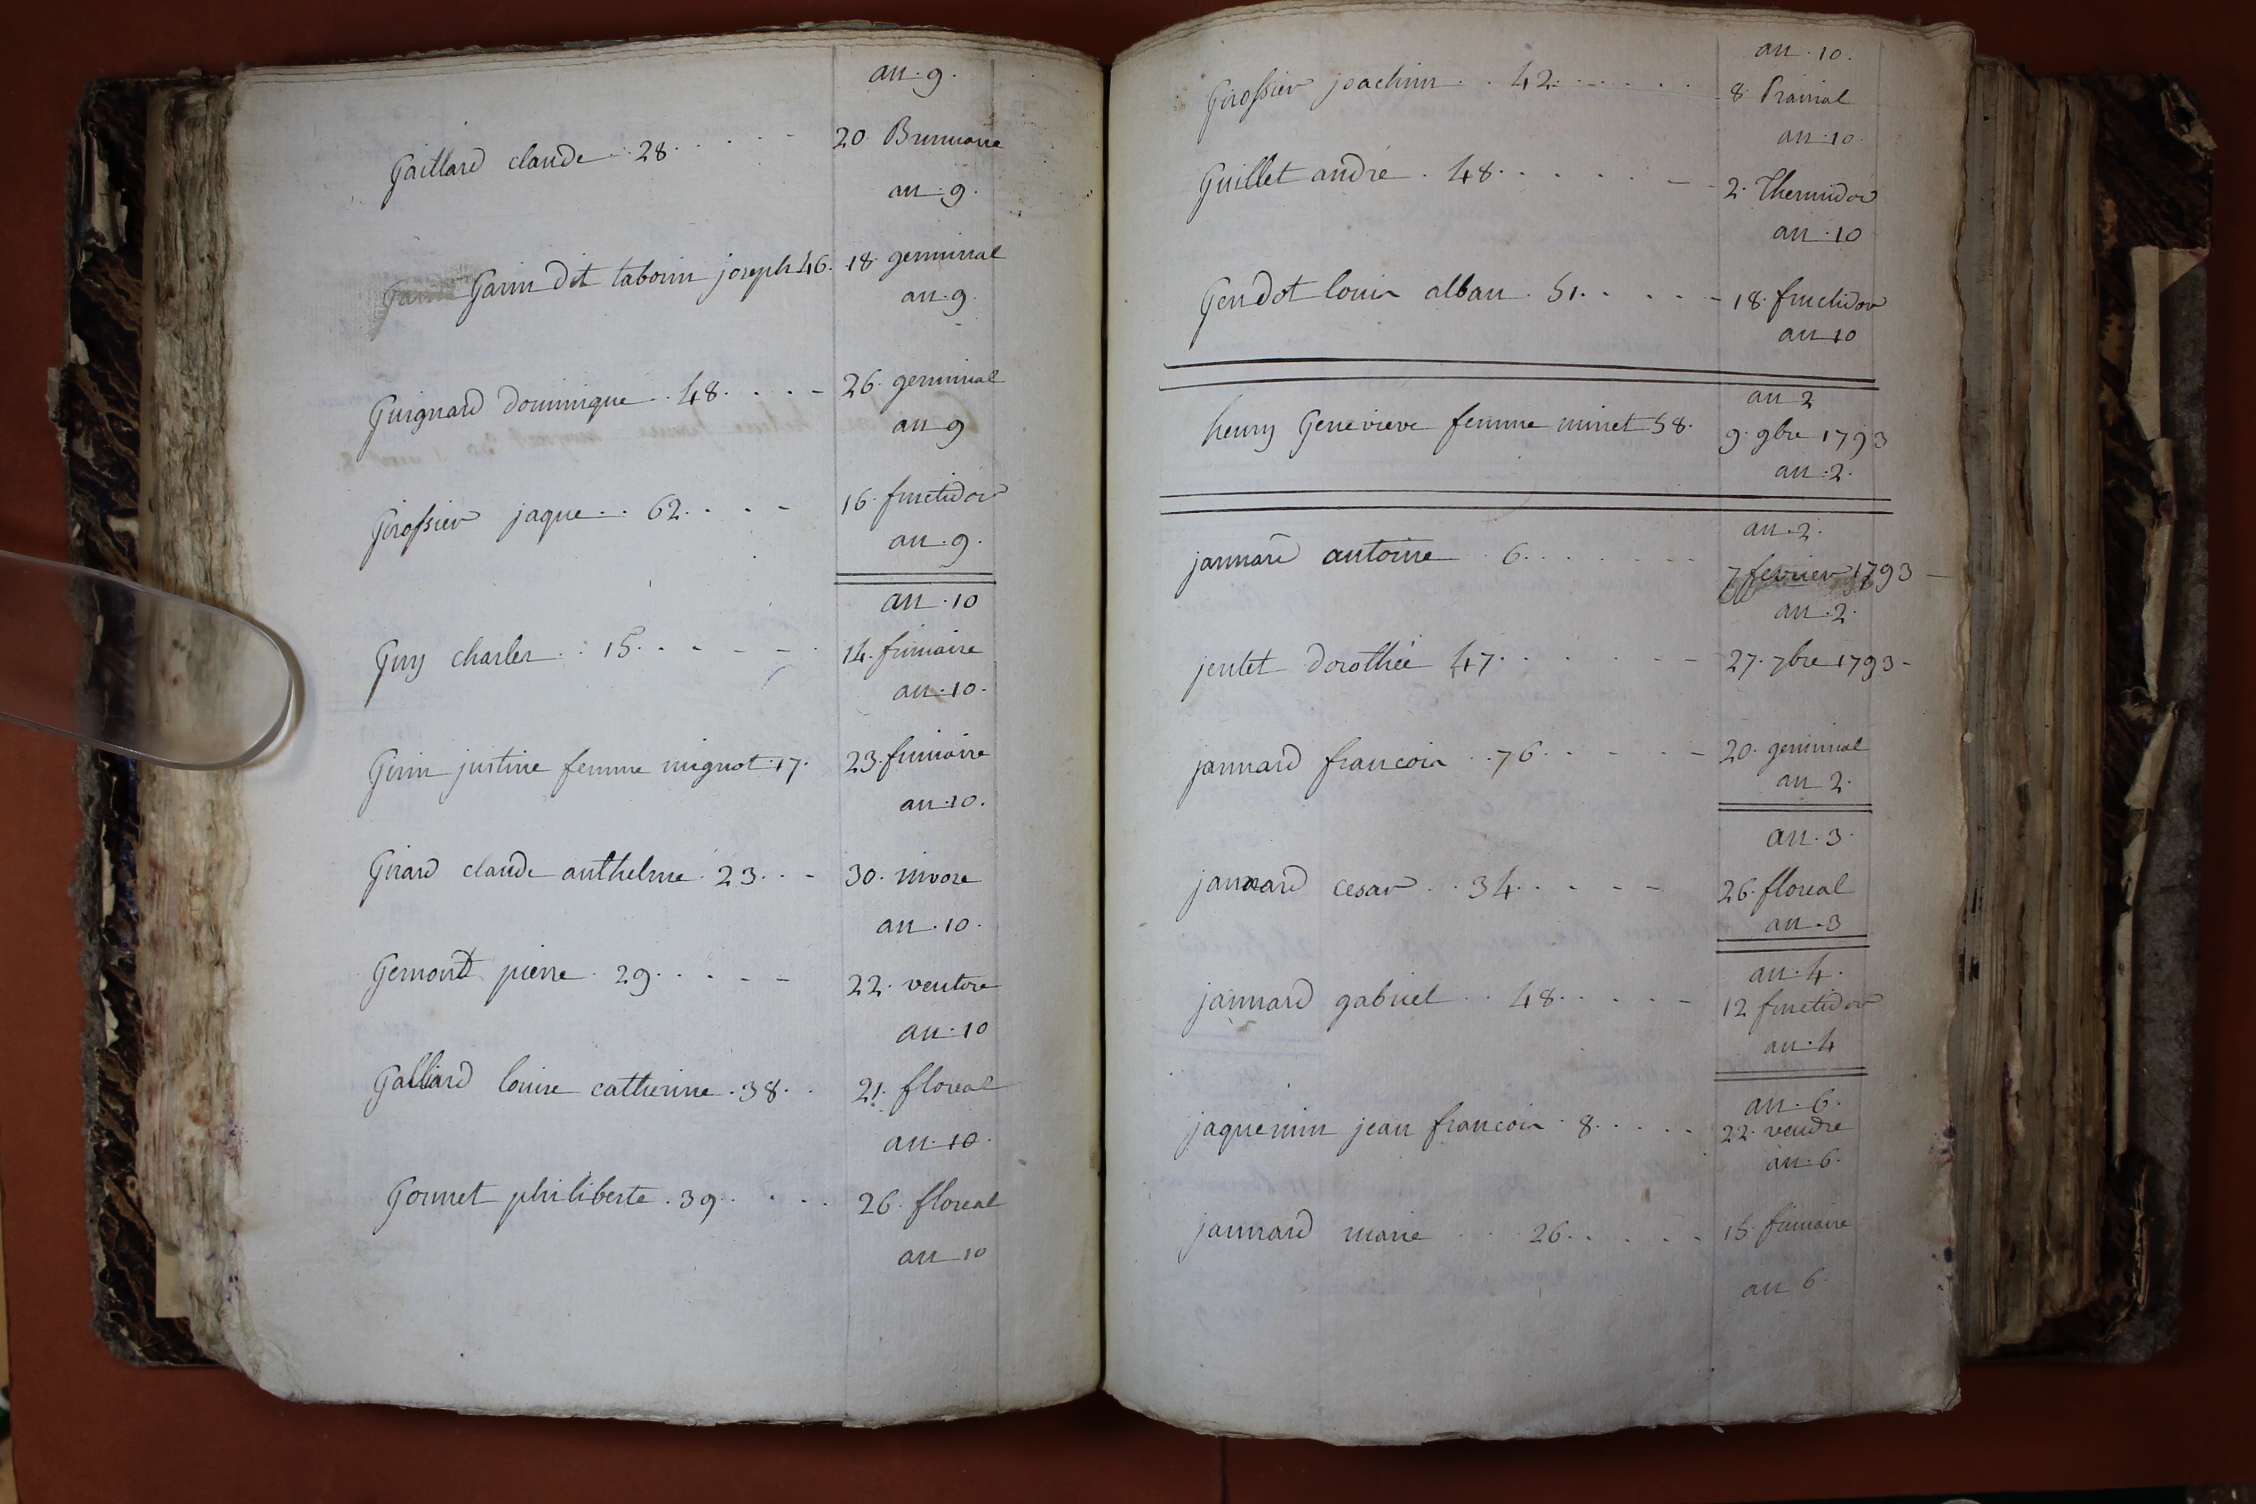 an . 9 .
Gaillard claude . . 28 . . . . - 20 Brumaire
an . 9 .
Garin dit taborin joseph 46 . 18 germinal
an . 9
Guignard dominique . . 48 . . . . - 26 . germinal
an 9
Grossier jaque . . 62 . . . - 16 . fructidor
an . 9 .
an . 10
Guy charles . . 15 . . - - - . 14 . frimaire
an . 10 .
Girin justine femme mignot . 17 . 23 . frimaire
an . 10 .
Girard claude anthelme . 23 . . - 30 . nivose
an . 10 .
Gemond pierre . 29 . . . - - 22 . ventose
an . 10
Galliard louise catherine . 38 . . 21 . floreal
an . 10 .
Gonnet philiberte . 39 . . . . 26 . floreal
an 10
an . 10 .
Grossier joachim . . 42 . . . . . . 8 . Prairial
an . 10 .
Guillet andré . 48 . . . . . - - 2 . Thermidor
an . 10
Gendot louis alban . 51 . . . . - - 18 . fructidor
an 10
an 2
henry Genevieve femme minet 58 . 9 . 9bre 1793
an . 2 .
an . 2 .
jannard antoine . 6 . . . . . . - 7 fevrier 1793 -
an . 2 .
jentet dorothée 47 . . . . . - - 27 . 7bre 1793 -
jannard francois . . 76 . . - . . - 20 . germinal
an 2 .
an . 3 .
jannard cesar . . 34 . . . . - - 26 . floreal
an . 3
an . 4 .
jannard gabriel . . 48 . . . . . - 12 fructidor
an . 4
an . 6 .
jaquemin jean francois . 8 . . . . . 22 . vendre
an . 6 .
jannard marie . . 26 . . . . . - 15 . frimaire
an 6 .